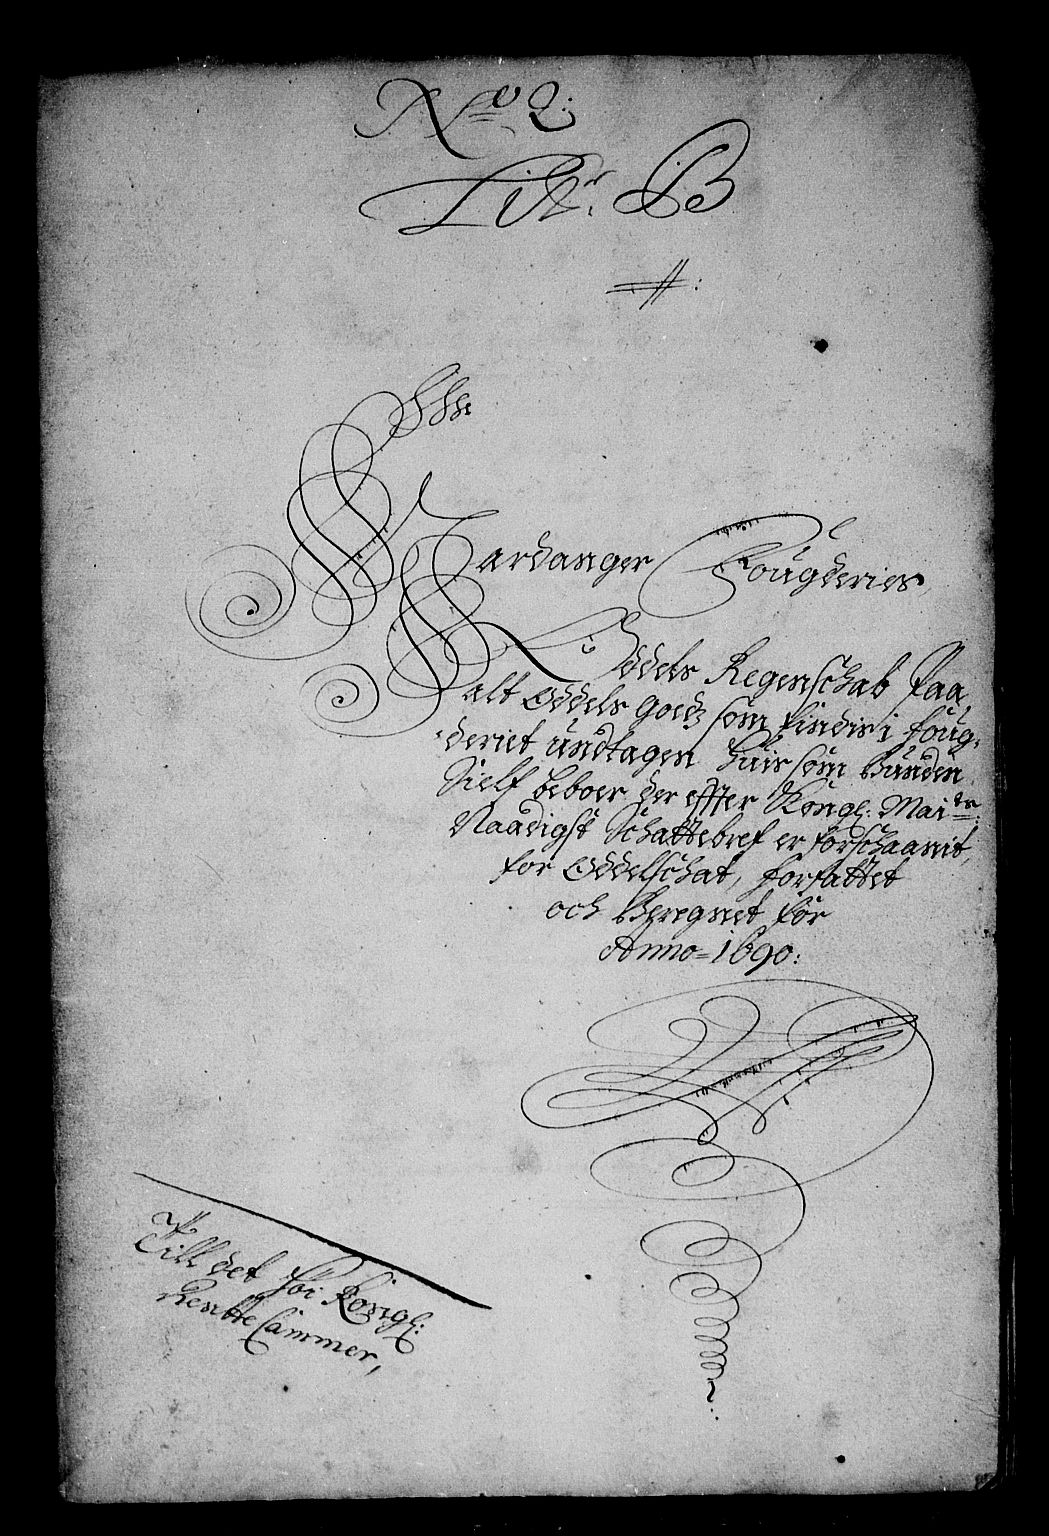 No 2:
Litr. B
Hardanger Fougderies
Oddels Regenschab Paa
alt Oddels goedz som findis i foug-
deriet undtagen huis som Bunden
Sielf beboer der effter Kongl: Maits:
Naadigst Schattebref er forschaanit,
for Oddelschat, forfattet
och Beregnet for
Anno 1690:
Till det høi Kongl:
Rentte Cammer,